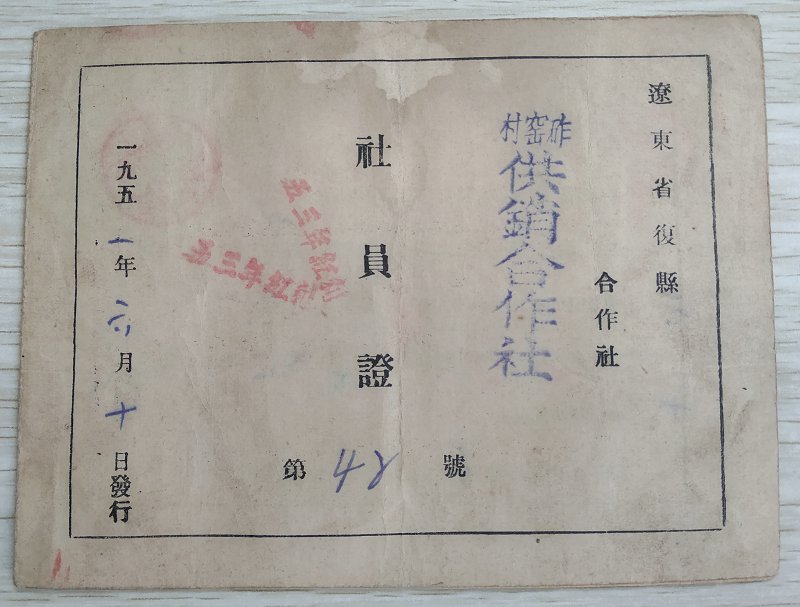 遼東省復縣
合作社
砟窑村
供銷合作社
社員證
第 號
五三年紅
五三年红
一九五一年六月十日發行